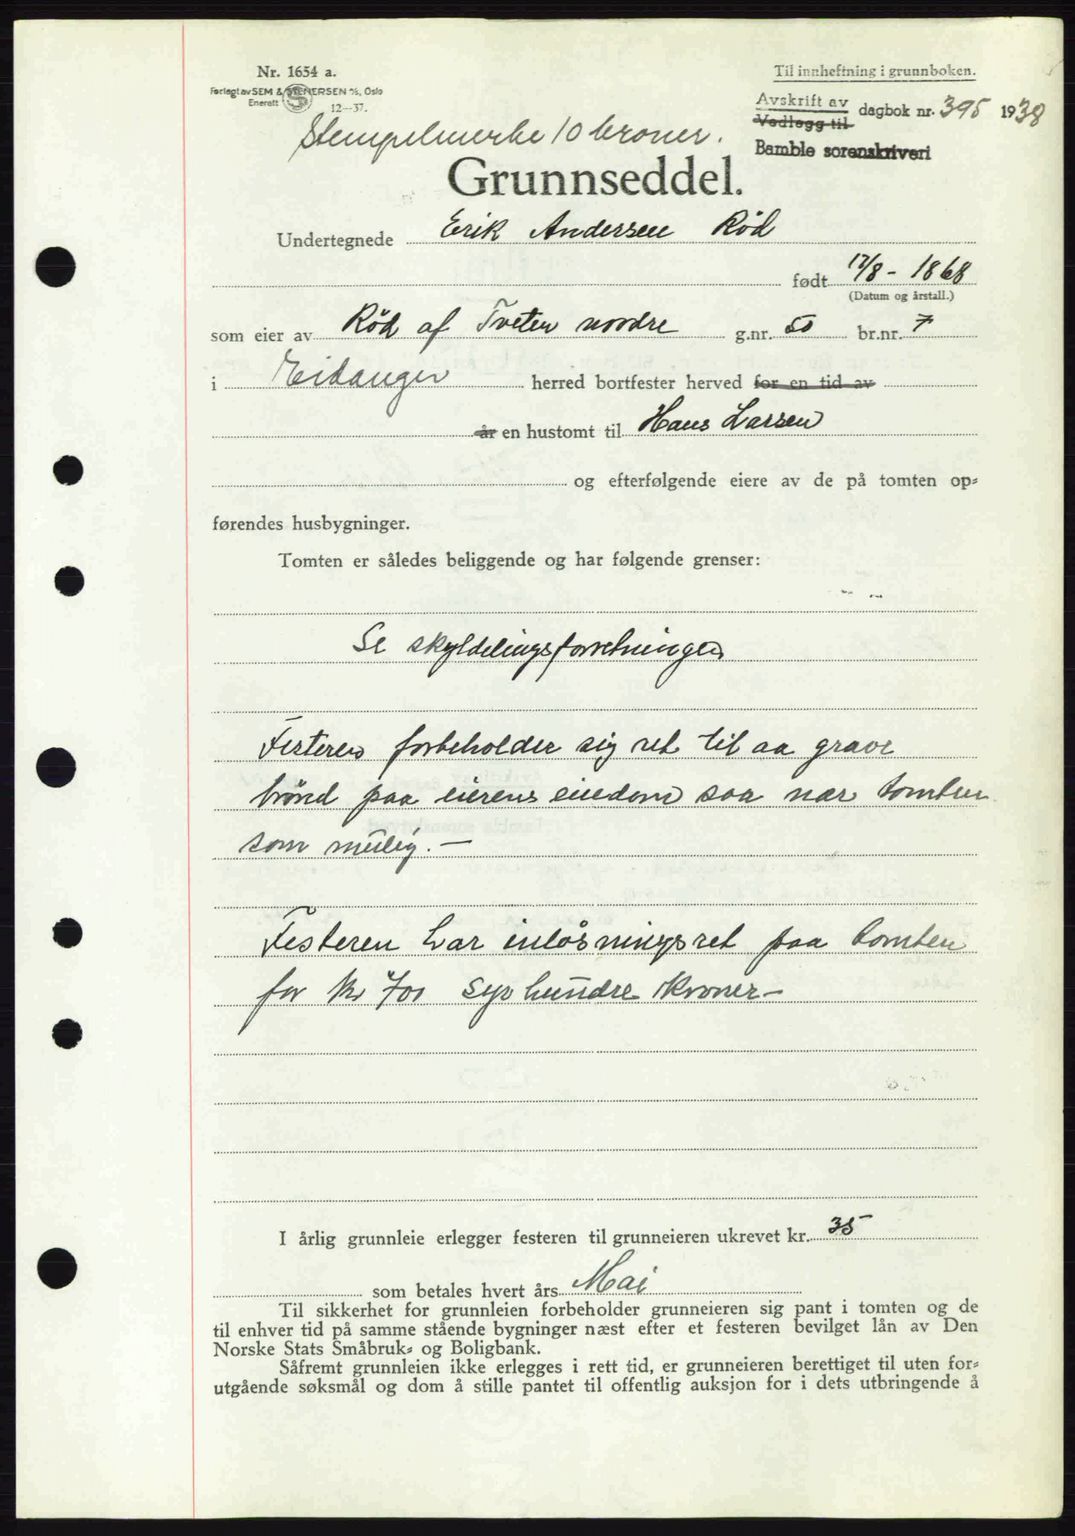 Nr. 1654 a.
Forlagt av SEM & STENERSEN A/S, Oslo
Enerett 12—37.
Til innheftning i grunnboken.
Avskrift av
Vedlegg til dagbok nr. 395 1938
Bamble sorenskriveri
Stempelmerke 10 kroner.
Grunnseddel.
Undertegnede Erik Andersen Rød
født 17/8 - 1868
(Datum og årstall.)
som eier av Rød af Tveten nordre g.nr. 50 br.nr. 7
i Eidanger herred bortfester herved for en tid av
år en hustomt til Hans Larsen
og efterfølgende eiere av de på tomten op-
førendes husbygninger.
Tomten er således beliggende og har følgende grenser:
Se skyldelingsforretningen
Festeren forbeholder sig ret til aa grave
brönd paa eierens eiedom saa nær tomten
som mulig. —
Festeren har inlösningsret paa tomten
for kr 700 syv hundre kroner —
I årlig grunnleie erlegger festeren til grunneieren ukrevet kr. 35
som betales hvert års Mai
Til sikkerhet for grunnleien forbeholder grunneieren sig pant i tomten og de
til enhver tid på samme stående bygninger næst efter et festeren bevilget lån av Den
Norske Stats Småbruk- og Boligbank.
Såfremt grunnleien ikke erlegges i rett tid, er grunneieren berettiget til uten for-
utgående søksmål og dom å stille pantet til offentlig auksjon for i dets utbringende å